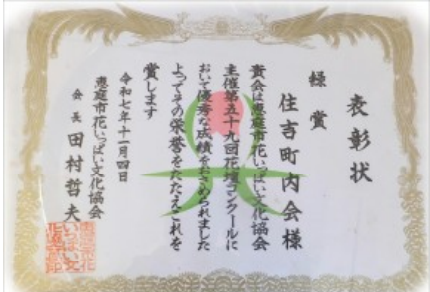 表彰状
様賞
住吉町内会様
貴会は恵庭市花いっぱい文化協会
主催第五十九回花壇コンクールに
おいて優秀な成績をおさめられました
よってその栄誉をたたえこれを
賞します
令和七年十一月四日
恵庭市花いっぱい文化協会
会長 田村哲夫